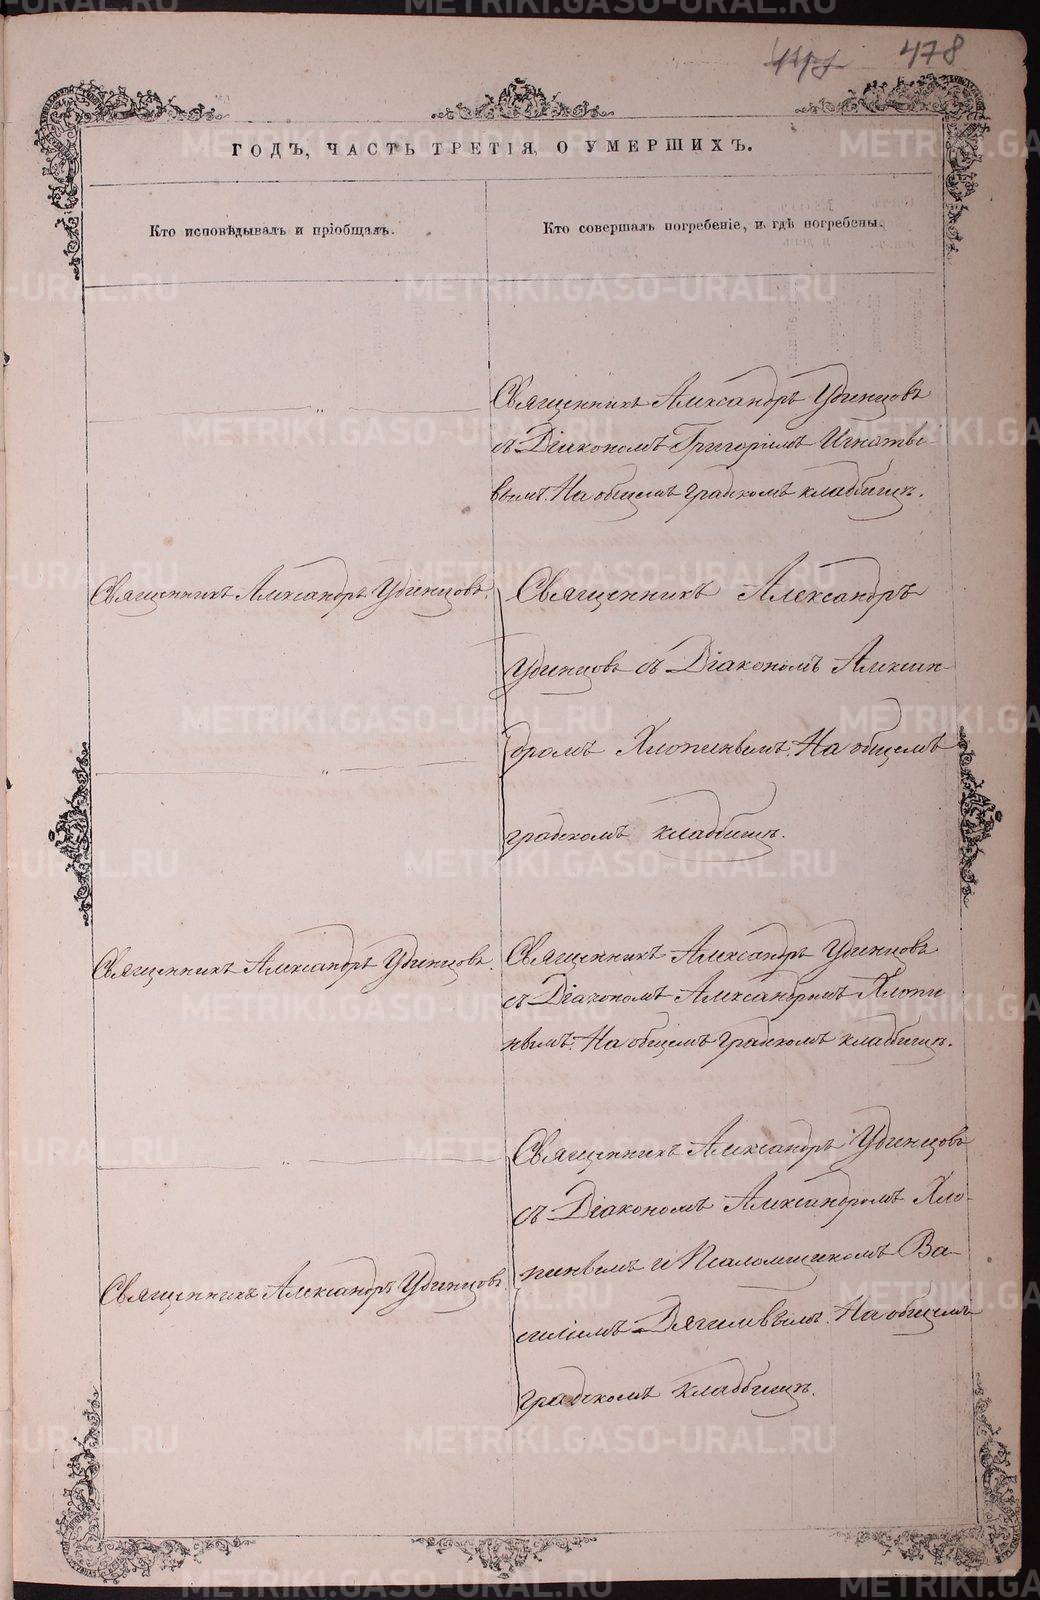 478
ГОДЪ, ЧАСТЬ ТРЕТІЯ, О УМЕРШИХЪ.
Кто исповѣдывалъ и пріобщалъ.
Кто совершалъ погребеніе, и гдѣ погребены.
Священникъ Александръ Удинцовъ
съ Діакономъ Григоріемъ Игнатье-
вымъ. На общемъ градскомъ кладбищѣ.
Священникъ Александръ Удинцовъ.
Священникъ Александръ
Удинцовъ съ Діакономъ Алексан-
дромъ Хлопинымъ. На общемъ
градскомъ кладбищѣ.
Священникъ Александръ Удинцовъ.
Священникъ Александръ Удинцовъ
съ Діакономъ Александромъ Хлопи-
нымъ. На общемъ градскомъ кладбищѣ.
Священникъ Александръ Удинцовъ
съ Діакономъ Александромъ Хло-
пинымъ и Псаломщикомъ Ва-
силіемъ Дягилевымъ. На общемъ
градскомъ кладбищѣ.
Священникъ Александръ Удинцовъ.
METRIKI.GASO-URAL.RU